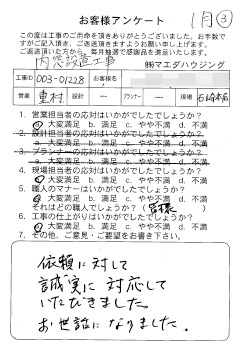 1月③
お客様アンケート
この度は工事のご用命を頂きありがとうございました。お手数で
すがご記入頂き、ご返送頂きますようお願い申し上げます。
ご返送頂いた方から、毎月抽選で感謝品を進呈いたします。
内窓設置工事
㈱マエダハウジング
工事ID 003-01228 お客様名
営業 重村 設計 ― プランナー ― 現場
1. 営業担当者の応対はいかがでしたでしょうか?
a. 大変満足 b. 満足 c. やや不満 d. 不満
2. 設計担当者の応対はいかがでしたでしょうか?
a. 大変満足 b. 満足 c. やや不満 d. 不満
3. プランナーの応対はいかがでしたでしょうか?
a. 大変満足 b. 満足 c. やや不満 d. 不満
4. 現場担当者の応対はいかがでしたでしょうか?
a. 大変満足 b. 満足 c. やや不満 d. 不満
5. 職人のマナーはいかがでしたでしょうか?
a. 大変満足 b. 満足 c. やや不満 d. 不満
それはどの職人でしょうか?(皆様)
6. 工事の仕上がりはいかがでしたでしょうか?
a. 大変満足 b. 満足 c. やや不満 d. 不満
7. その他、ご意見・ご要望をお書き下さい。
依頼に対して
誠実に対応して
いただきました。
お世話になりました。